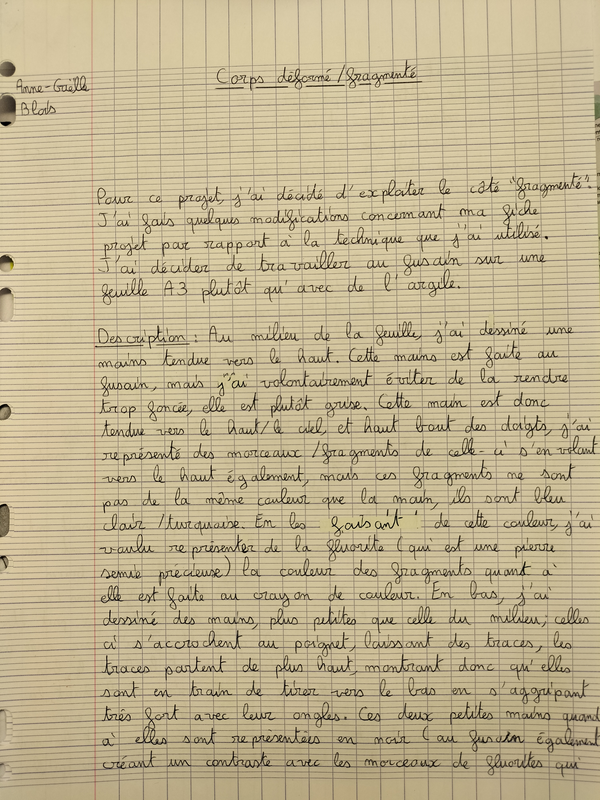 Corps déformé/fragmenté
Anne-Gaëlle
Blois
Pour ce projet, j'ai décidé d'exploiter le côté "fragmenté".
J'ai fais quelques modifications concernant ma fiche
projet par rapport à la technique que j'ai utilisé.
J'ai décider de travailler au fusain sur une
feuille A3 plutôt qu'avec de l'argile.
Description : Au milieu de la feuille, j'ai dessiné une
mains tendue vers le haut. Cette mains est faite au
fusain, mais j'ai volontairement éviter de la rendre
trop foncée, elle est plutôt grise. Cette main est donc
tendue vers le haut/le ciel, et haut bout des doigts, j'ai
représenté des morceaux/fragments de celle-ci s'en volant
vers le haut également, mais ces fragments ne sont
pas de la même couleur que la main, ils sont bleu
clair/turquoise. En les faisant de cette couleur, j'ai
voulu représenter de la fluorite (qui est une pierre
semie précieuse) la couleur des fragments quant à
elle est faite au crayon de couleur. En bas, j'ai
dessiné des mains, plus petites que celle du milieu, celles
ci s'accrochent au poignet, laissant des traces, les
traces partent de plus haut, montrant donc qu'elles
sont en train de tirer vers le bas en s'aggripant
très fort avec leur ongles. Ces deux petites mains quand
à elles sont représentées en noir (au fusain également
créant un contraste avec les morceaux de fluorites qui